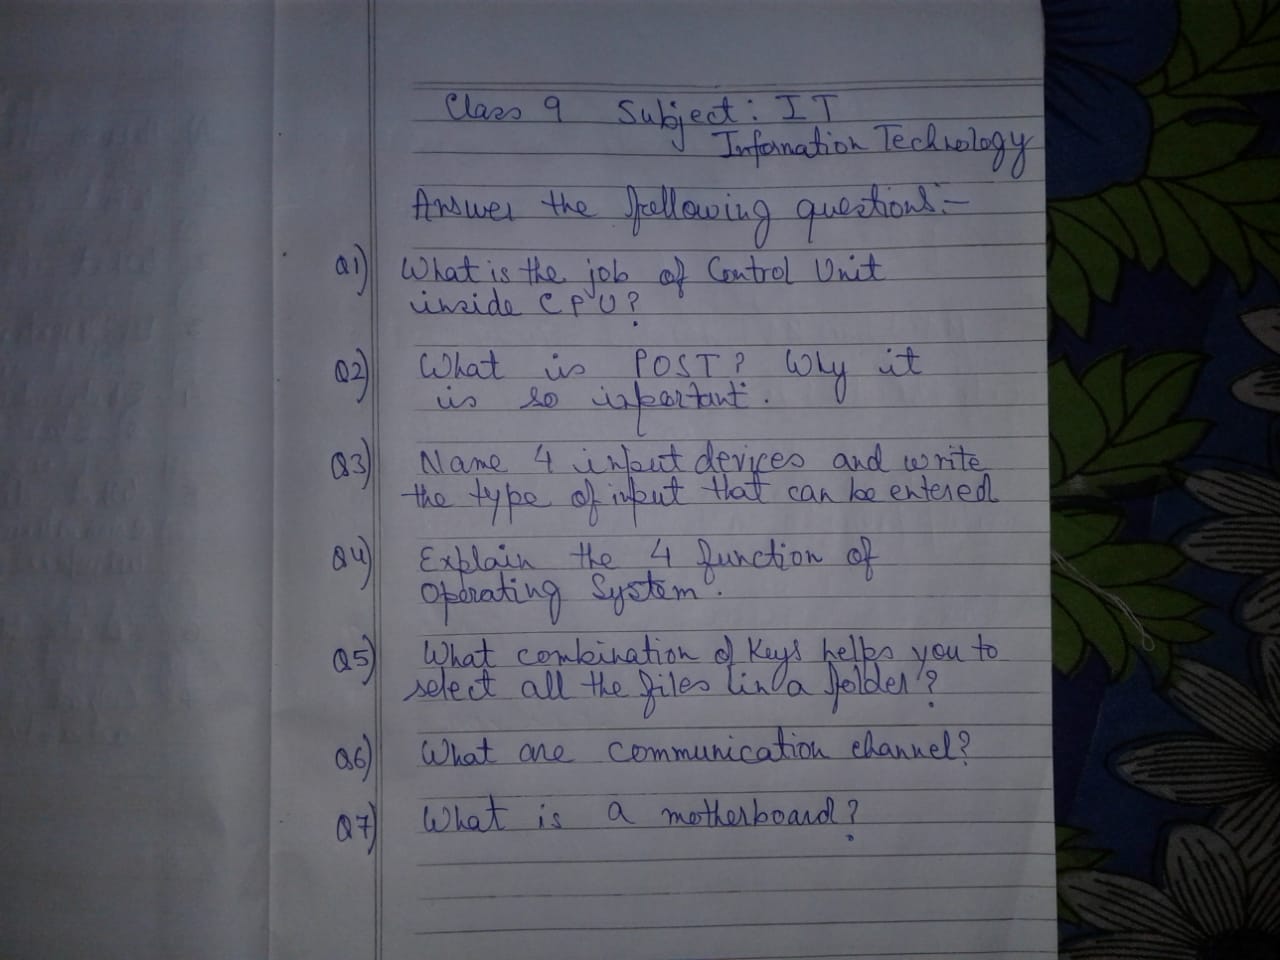 Class 9 Subject: IT
Information Technology
Answer the following questions:-
Q1) What is the job of Control Unit
inside CPU?
Q2) What is POST? Why it
is so important.
Q3) Name 4 input devices and write
the type of input that can be entered
Q4) Explain the 4 function of
Operating System.
Q5) What combination of Keys helps you to
select all the files in a folder?
Q6) What are communication channel?
Q7) What is a motherboard?